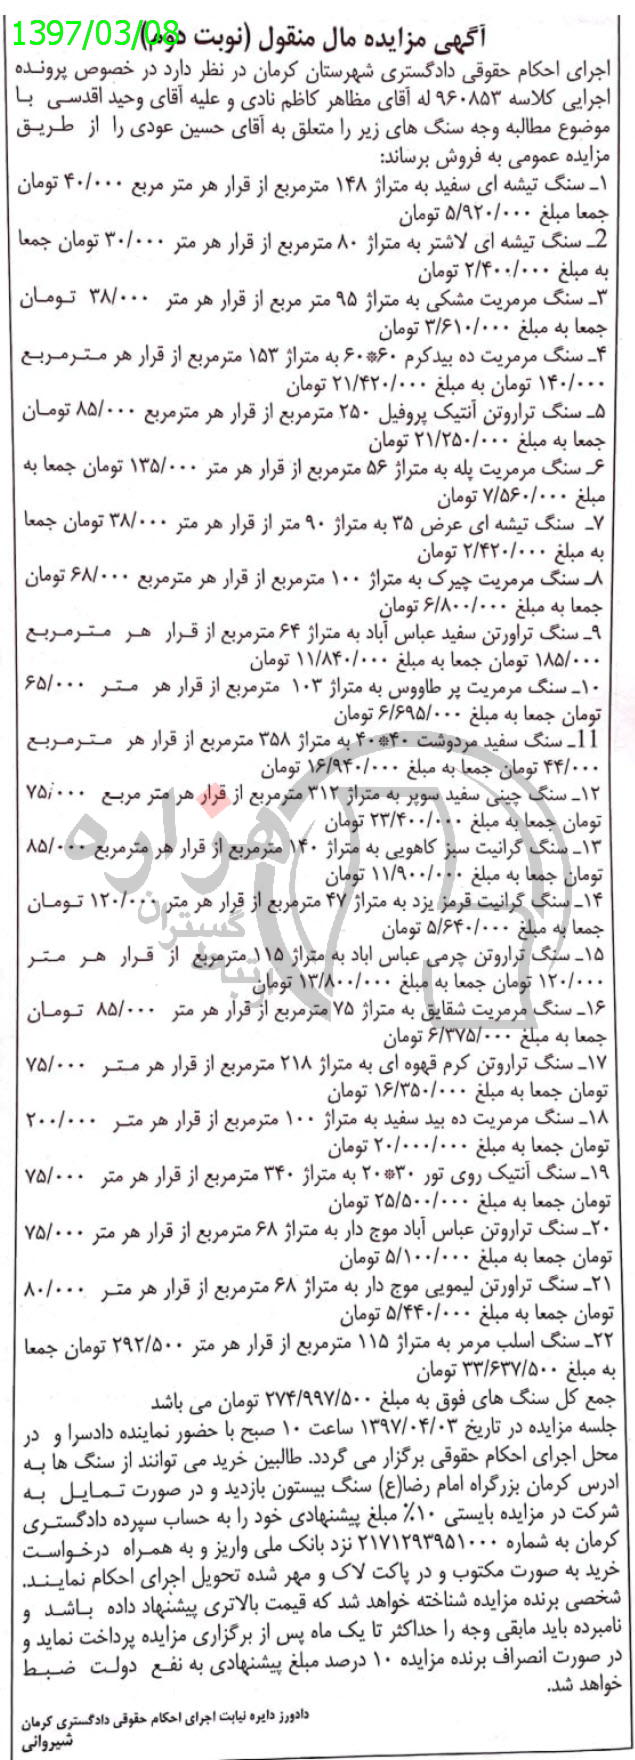 1397/03/08
آگهی مزایده مال منقول (نوبت دوم)
اجرای احکام حقوقی دادگستری شهرستان کرمان در نظر دارد در خصوص پرونده
اجرایی کلاسه ۹۶۰۸۵۳ له آقای مظاهر کاظم نادی و علیه آقای وحید اقدسی با
موضوع مطالبه وجه سنگ های زیر را متعلق به آقای حسین عودی را از طریق
مزایده عمومی به فروش برساند:
۱ـ سنگ تیشه ای سفید به متراژ ۱۴۸ مترمربع از قرار هر متر مربع ۴۰/۰۰۰ تومان
جمعا مبلغ ۵/۹۲۰/۰۰۰ تومان
2ـ سنگ تیشه ای لاشتر به متراژ ۸۰ مترمربع از قرار هر متر ۳۰/۰۰۰ تومان جمعا
به مبلغ ۲/۴۰۰/۰۰۰ تومان
۳ـ سنگ مرمریت مشکی به متراژ ۹۵ متر مربع از قرار هر متر ۳۸/۰۰۰ تومان
جمعا به مبلغ ۳/۶۱۰/۰۰۰ تومان
۴ـ سنگ مرمریت ده بیدکرم ۶۰*۶۰ به متراژ ۱۵۳ مترمربع از قرار هر مترمربع
۱۴۰/۰۰۰ تومان به مبلغ ۲۱/۴۲۰/۰۰۰ تومان
۵ـ سنگ تراروتن آنتیک پروفیل ۲۵۰ مترمربع از قرار هر مترمربع ۸۵/۰۰۰ تومان
جمعا به مبلغ ۲۱/۲۵۰/۰۰۰ تومان
۶ـ سنگ مرمریت پله به متراژ ۵۶ مترمربع از قرار هر متر ۱۳۵/۰۰۰ تومان جمعا به
مبلغ ۷/۵۶۰/۰۰۰ تومان
۷ـ سنگ تیشه ای عرض ۳۵ به متراژ ۹۰ متر از قرار هر متر ۳۸/۰۰۰ تومان جمعا
به مبلغ ۲/۴۲۰/۰۰۰ تومان
۸ـ سنگ مرمریت چیرک به متراژ ۱۰۰ مترمربع از قرار هر مترمربع ۶۸/۰۰۰ تومان
جمعا به مبلغ ۶/۸۰۰/۰۰۰ تومان
۹ـ سنگ تراورتن سفید عباس آباد به متراژ ۶۴ مترمربع از قرار هر مترمربع
۱۸۵/۰۰۰ تومان جمعا به مبلغ ۱۱/۸۴۰/۰۰۰ تومان
۱۰ـ سنگ مرمریت پر طاووس به متراژ ۱۰۳ مترمربع از قرار هر متر ۶۵/۰۰۰
تومان جمعا به مبلغ ۶/۶۹۵/۰۰۰ تومان
11ـ سنگ سفید مردوشت ۴۰*۴۰ به متراژ ۳۵۸ مترمربع از قرار هر مترمربع
۴۴/۰۰۰ تومان جمعا به مبلغ ۱۶/۹۴۰/۰۰۰ تومان
۱۲ـ سنگ چینی سفید سوپر به متراژ ۳۱۲ مترمربع از قرار هر متر مربع ۷۵/۰۰۰
تومان جمعا به مبلغ ۲۳/۴۰۰/۰۰۰ تومان
۱۳ـ سنگ گرانیت سبز کاهویی به متراژ ۱۴۰ مترمربع از قرار هر مترمربع ۸۵/۰۰۰
تومان جمعا به مبلغ ۱۱/۹۰۰/۰۰۰ تومان
۱۴ـ سنگ گرانیت قرمز یزد به متراژ ۴۷ مترمربع از قرار هر متر ۱۲۰/۰۰۰ تومان
جمعا به مبلغ ۵/۶۴۰/۰۰۰ تومان
۱۵ـ سنگ تراروتن چرمی عباس اباد به متراژ ۱۱۵ مترمربع از قرار هر متر
۱۲۰/۰۰۰ تومان جمعا به مبلغ ۱۳/۸۰۰/۰۰۰ تومان
۱۶ـ سنگ مرمریت شقایق به متراژ ۷۵ مترمربع از قرار هر متر ۸۵/۰۰۰ تومان
جمعا به مبلغ ۶/۳۷۵/۰۰۰ تومان
۱۷ـ سنگ تراروتن کرم قهوه ای به متراژ ۲۱۸ مترمربع از قرار هر متر ۷۵/۰۰۰
تومان جمعا به مبلغ ۱۶/۳۵۰/۰۰۰ تومان
۱۸ـ سنگ مرمریت ده بید سفید به متراژ ۱۰۰ مترمربع از قرار هر متر ۲۰۰/۰۰۰
تومان جمعا به مبلغ ۲۰/۰۰۰/۰۰۰ تومان
۱۹ـ سنگ آنتیک روی تور ۳۰*۲۰ به متراژ ۳۴۰ مترمربع از قرار هر متر ۷۵/۰۰۰
تومان جمعا به مبلغ ۲۵/۵۰۰/۰۰۰ تومان
۲۰ـ سنگ تراروتن عباس آباد موج دار به متراژ ۶۸ مترمربع از قرار هر متر ۷۵/۰۰۰
تومان جمعا به مبلغ ۵/۱۰۰/۰۰۰ تومان
۲۱ـ سنگ تراورتن لیمویی موج دار به متراژ ۶۸ مترمربع از قرار هر متر ۸۰/۰۰۰
تومان جمعا به مبلغ ۵/۴۴۰/۰۰۰ تومان
۲۲ـ سنگ اسلب مرمر به متراژ ۱۱۵ مترمربع از قرار هر متر ۲۹۲/۵۰۰ تومان جمعا
به مبلغ ۳۳/۶۳۷/۵۰۰ تومان
جمع کل سنگ های فوق به مبلغ ۲۷۴/۹۹۷/۵۰۰ تومان می باشد
جلسه مزایده در تاریخ ۱۳۹۷/۰۴/۰۳ ساعت ۱۰ صبح با حضور نماینده دادسرا و در
محل اجرای احکام حقوقی برگزار می گردد. طالبین خرید می توانند از سنگ ها به
ادرس کرمان بزرگراه امام رضا(ع) سنگ بیستون بازدید و در صورت تمایل به
شرکت در مزایده بایستی ۱۰٪ مبلغ پیشنهادی خود را به حساب سپرده دادگستری
کرمان به شماره ۲۱۷۱۲۹۳۹۵۱۰۰۰ نزد بانک ملی واریز و به همراه درخواست
خرید به صورت مکتوب و در پاکت لاک و مهر شده تحویل اجرای احکام نمایند.
شخصی برنده مزایده شناخته خواهد شد که قیمت بالاتری پیشنهاد داده باشد و
نامبرده باید مابقی وجه را حداکثر تا یک ماه پس از برگزاری مزایده پرداخت نماید و
در صورت انصراف برنده مزایده ۱۰ درصد مبلغ پیشنهادی به نفع دولت ضبط
خواهد شد.
دادورز دایره نیابت اجرای احکام حقوقی دادگستری کرمان
شیروانی
هزاره
گستران